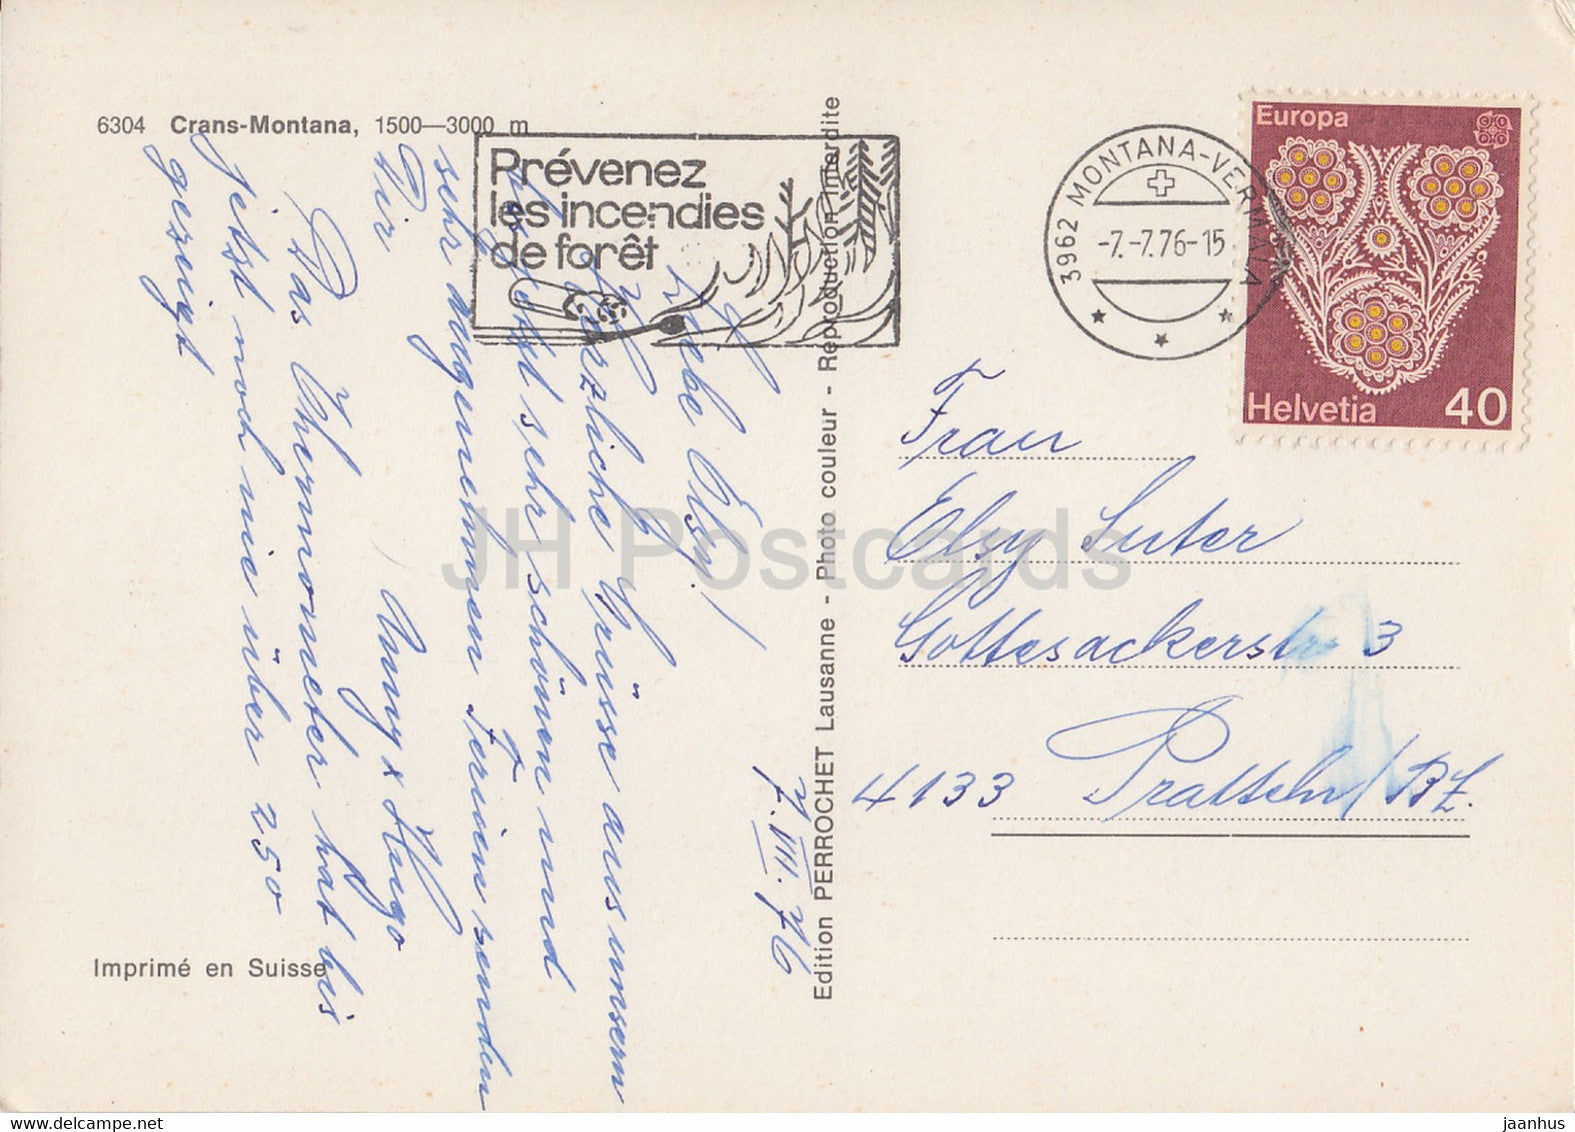 6304 Crans-Montana, 1500—3000 m
Prévenez
les incendies
de forêt
3962 MONTANA-VERMALA
-7.-7.76-15
Europa
Helvetia 40
7. VII. 76
Liebe Elsy!
Herzliche Grüsse aus unsern
sehr schönen und
sehr angenehmen Ferien senden
Dir
Anny & Hugo
Das Thermometer hat bis
jetzt noch nie über 250
gezeigt
Edition PERROCHET Lausanne - Photo couleur - Reproduction interdite
Frau
Elsy Suter
Gottesackerstr. 3
4133 Pratteln/BL.
Imprimé en Suisse
JH Postcards
jaanhus